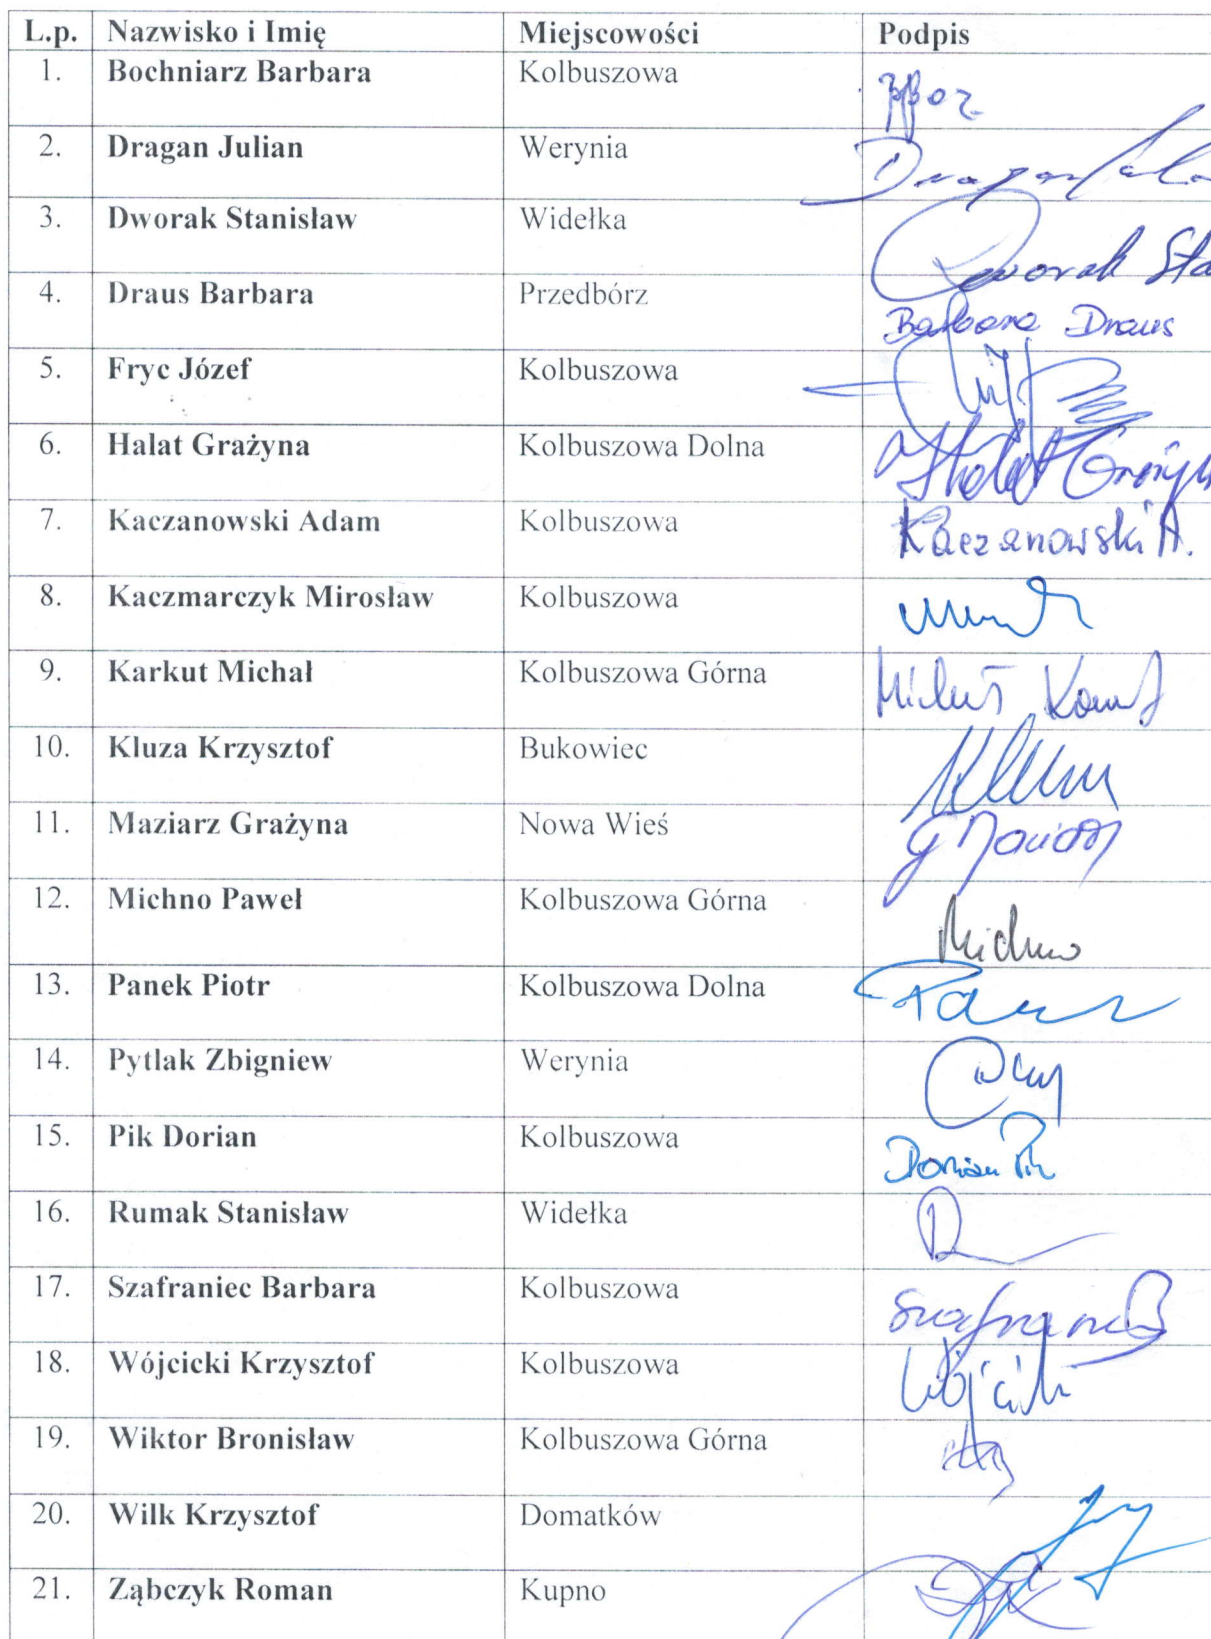 L.p. Nazwisko i Imię Miejscowości Podpis
1. Bochniarz Barbara Kolbuszowa
2. Dragan Julian Werynia Dragan
3. Dworak Stanisław Widełka Dworak Sta
4. Draus Barbara Przedbórz Barbara Draus
5. Fryc Józef Kolbuszowa
6. Halat Grażyna Kolbuszowa Dolna Halat Grażyn
7. Kaczanowski Adam Kolbuszowa Kaczanowski A.
8. Kaczmarczyk Mirosław Kolbuszowa
9. Karkut Michał Kolbuszowa Górna
10. Kluza Krzysztof Bukowiec
11. Maziarz Grażyna Nowa Wieś
12. Michno Paweł Kolbuszowa Górna Michno
13. Panek Piotr Kolbuszowa Dolna
14. Pytlak Zbigniew Werynia
15. Pik Dorian Kolbuszowa Dorian Pik
16. Rumak Stanisław Widełka
17. Szafraniec Barbara Kolbuszowa
18. Wójcicki Krzysztof Kolbuszowa
19. Wiktor Bronisław Kolbuszowa Górna
20. Wilk Krzysztof Domatków
21. Ząbczyk Roman Kupno